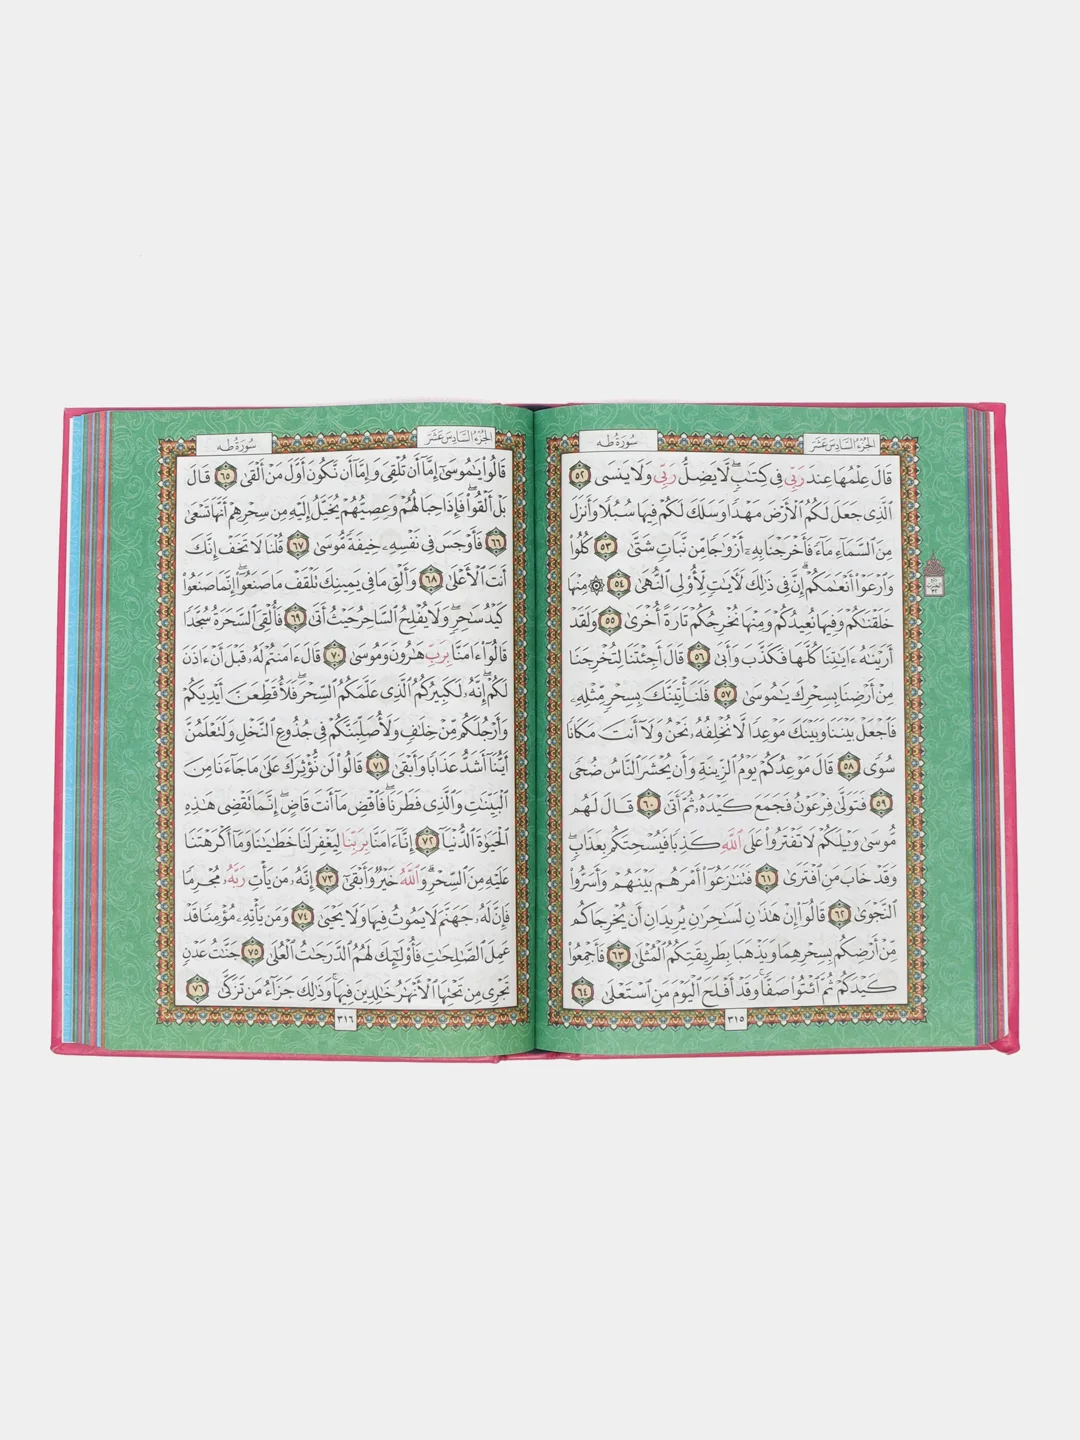 الجزء السادس عشر
سورة طه
قَالَ عِلْمُهَا عِندَ رَبِّي فِي كِتَٰبٍ ۖ لَّا يَضِلُّ رَبِّي وَلَا يَنسَى ٥٢
ٱلَّذِي جَعَلَ لَكُمُ ٱلْأَرْضَ مَهْدًا وَسَلَكَ لَكُمْ فِيهَا سُبُلًا وَأَنزَلَ
مِنَ ٱلسَّمَآءِ مَآءً فَأَخْرَجْنَا بِهِۦٓ أَزْوَٰجًا مِّن نَّبَاتٍ شَتَّىٰ ٥٣ كُلُوا۟
وَٱرْعَوْا۟ أَنْعَٰمَكُمْ ۗ إِنَّ فِي ذَٰلِكَ لَـَٔايَٰتٍ لِّأُو۟لِي ٱلنُّهَىٰ ٥٤ ۞ مِنْهَا
خَلَقْنَٰكُمْ وَفِيهَا نُعِيدُكُمْ وَمِنْهَا نُخْرِجُكُمْ تَارَةً أُخْرَىٰ ٥٥ وَلَقَدْ
أَرَيْنَٰهُ ءَايَٰتِنَا كُلَّهَا فَكَذَّبَ وَأَبَىٰ ٥٦ قَالَ أَجِئْتَنَا لِتُخْرِجَنَا
مِنْ أَرْضِنَا بِسِحْرِكَ يَٰمُوسَىٰ ٥٧ فَلَنَأْتِيَنَّكَ بِسِحْرٍ مِّثْلِهِۦ
فَٱجْعَلْ بَيْنَنَا وَبَيْنَكَ مَوْعِدًا لَّا نُخْلِفُهُۥ نَحْنُ وَلَآ أَنتَ مَكَانًا
سُوًى ٥٨ قَالَ مَوْعِدُكُمْ يَوْمُ ٱلزِّينَةِ وَأَن يُحْشَرَ ٱلنَّاسُ ضُحًى
٥٩ فَتَوَلَّىٰ فِرْعَوْنُ فَجَمَعَ كَيْدَهُۥ ثُمَّ أَتَىٰ ٦٠ قَالَ لَهُم
مُّوسَىٰ وَيْلَكُمْ لَا تَفْتَرُوا۟ عَلَى ٱللَّهِ كَذِبًا فَيُسْحِتَكُم بِعَذَابٍ ۖ
وَقَدْ خَابَ مَنِ ٱفْتَرَىٰ ٦١ فَتَنَٰزَعُوٓا۟ أَمْرَهُم بَيْنَهُمْ وَأَسَرُّوا۟
ٱلنَّجْوَىٰ ٦٢ قَالُوٓا۟ إِنْ هَٰذَٰنِ لَسَٰحِرَٰنِ يُرِيدَانِ أَن يُخْرِجَاكُم
مِّنْ أَرْضِكُم بِسِحْرِهِمَا وَيَذْهَبَا بِطَرِيقَتِكُمُ ٱلْمُثْلَىٰ ٦٣ فَأَجْمِعُوا۟
كَيْدَكُمْ ثُمَّ ٱئْتُوا۟ صَفًّا ۚ وَقَدْ أَفْلَحَ ٱلْيَوْمَ مَنِ ٱسْتَعْلَىٰ ٦٤
٣١٥
الجزء السادس عشر
سورة طه
قَالُوا۟ يَٰمُوسَىٰٓ إِمَّآ أَن تُلْقِيَ وَإِمَّآ أَن نَّكُونَ أَوَّلَ مَنْ أَلْقَىٰ ٦٥ قَالَ
بَلْ أَلْقُوا۟ ۖ فَإِذَا حِبَالُهُمْ وَعِصِيُّهُمْ يُخَيَّلُ إِلَيْهِ مِن سِحْرِهِمْ أَنَّهَا تَسْعَىٰ
٦٦ فَأَوْجَسَ فِي نَفْسِهِۦ خِيفَةً مُّوسَىٰ ٦٧ قُلْنَا لَا تَخَفْ إِنَّكَ
أَنتَ ٱلْأَعْلَىٰ ٦٨ وَأَلْقِ مَا فِي يَمِينِكَ تَلْقَفْ مَا صَنَعُوٓا۟ ۖ إِنَّمَا صَنَعُوا۟
كَيْدُ سَٰحِرٍ ۖ وَلَا يُفْلِحُ ٱلسَّاحِرُ حَيْثُ أَتَىٰ ٦٩ فَأُلْقِيَ ٱلسَّحَرَةُ سُجَّدًا
قَالُوٓا۟ ءَامَنَّا بِرَبِّ هَٰرُونَ وَمُوسَىٰ ٧٠ قَالَ ءَامَنتُمْ لَهُۥ قَبْلَ أَنْ ءَاذَنَ
لَكُمْ ۖ إِنَّهُۥ لَكَبِيرُكُمُ ٱلَّذِي عَلَّمَكُمُ ٱلسِّحْرَ ۖ فَلَأُقَطِّعَنَّ أَيْدِيَكُمْ
وَأَرْجُلَكُم مِّنْ خِلَٰفٍ وَلَأُصَلِّبَنَّكُمْ فِي جُذُوعِ ٱلنَّخْلِ وَلَتَعْلَمُنَّ
أَيُّنَآ أَشَدُّ عَذَابًا وَأَبْقَىٰ ٧١ قَالُوا۟ لَن نُّؤْثِرَكَ عَلَىٰ مَا جَآءَنَا مِنَ
ٱلْبَيِّنَٰتِ وَٱلَّذِي فَطَرَنَا ۖ فَٱقْضِ مَآ أَنتَ قَاضٍ ۖ إِنَّمَا تَقْضِي هَٰذِهِ
ٱلْحَيَوٰةَ ٱلدُّنْيَآ ٧٢ إِنَّآ ءَامَنَّا بِرَبِّنَا لِيَغْفِرَ لَنَا خَطَٰيَٰنَا وَمَآ أَكْرَهْتَنَا
عَلَيْهِ مِنَ ٱلسِّحْرِ ۗ وَٱللَّهُ خَيْرٌ وَأَبْقَىٰٓ ٧٣ إِنَّهُۥ مَن يَأْتِ رَبَّهُۥ مُجْرِمًا
فَإِنَّ لَهُۥ جَهَنَّمَ لَا يَمُوتُ فِيهَا وَلَا يَحْيَىٰ ٧٤ وَمَن يَأْتِهِۦ مُؤْمِنًا قَدْ
عَمِلَ ٱلصَّٰلِحَٰتِ فَأُو۟لَٰٓئِكَ لَهُمُ ٱلدَّرَجَٰتُ ٱلْعُلَىٰ ٧٥ جَنَّٰتُ عَدْنٍ
تَجْرِي مِن تَحْتِهَا ٱلْأَنْهَٰرُ خَٰلِدِينَ فِيهَا ۚ وَذَٰلِكَ جَزَآءُ مَن تَزَكَّىٰ ٧٦
٣١٦